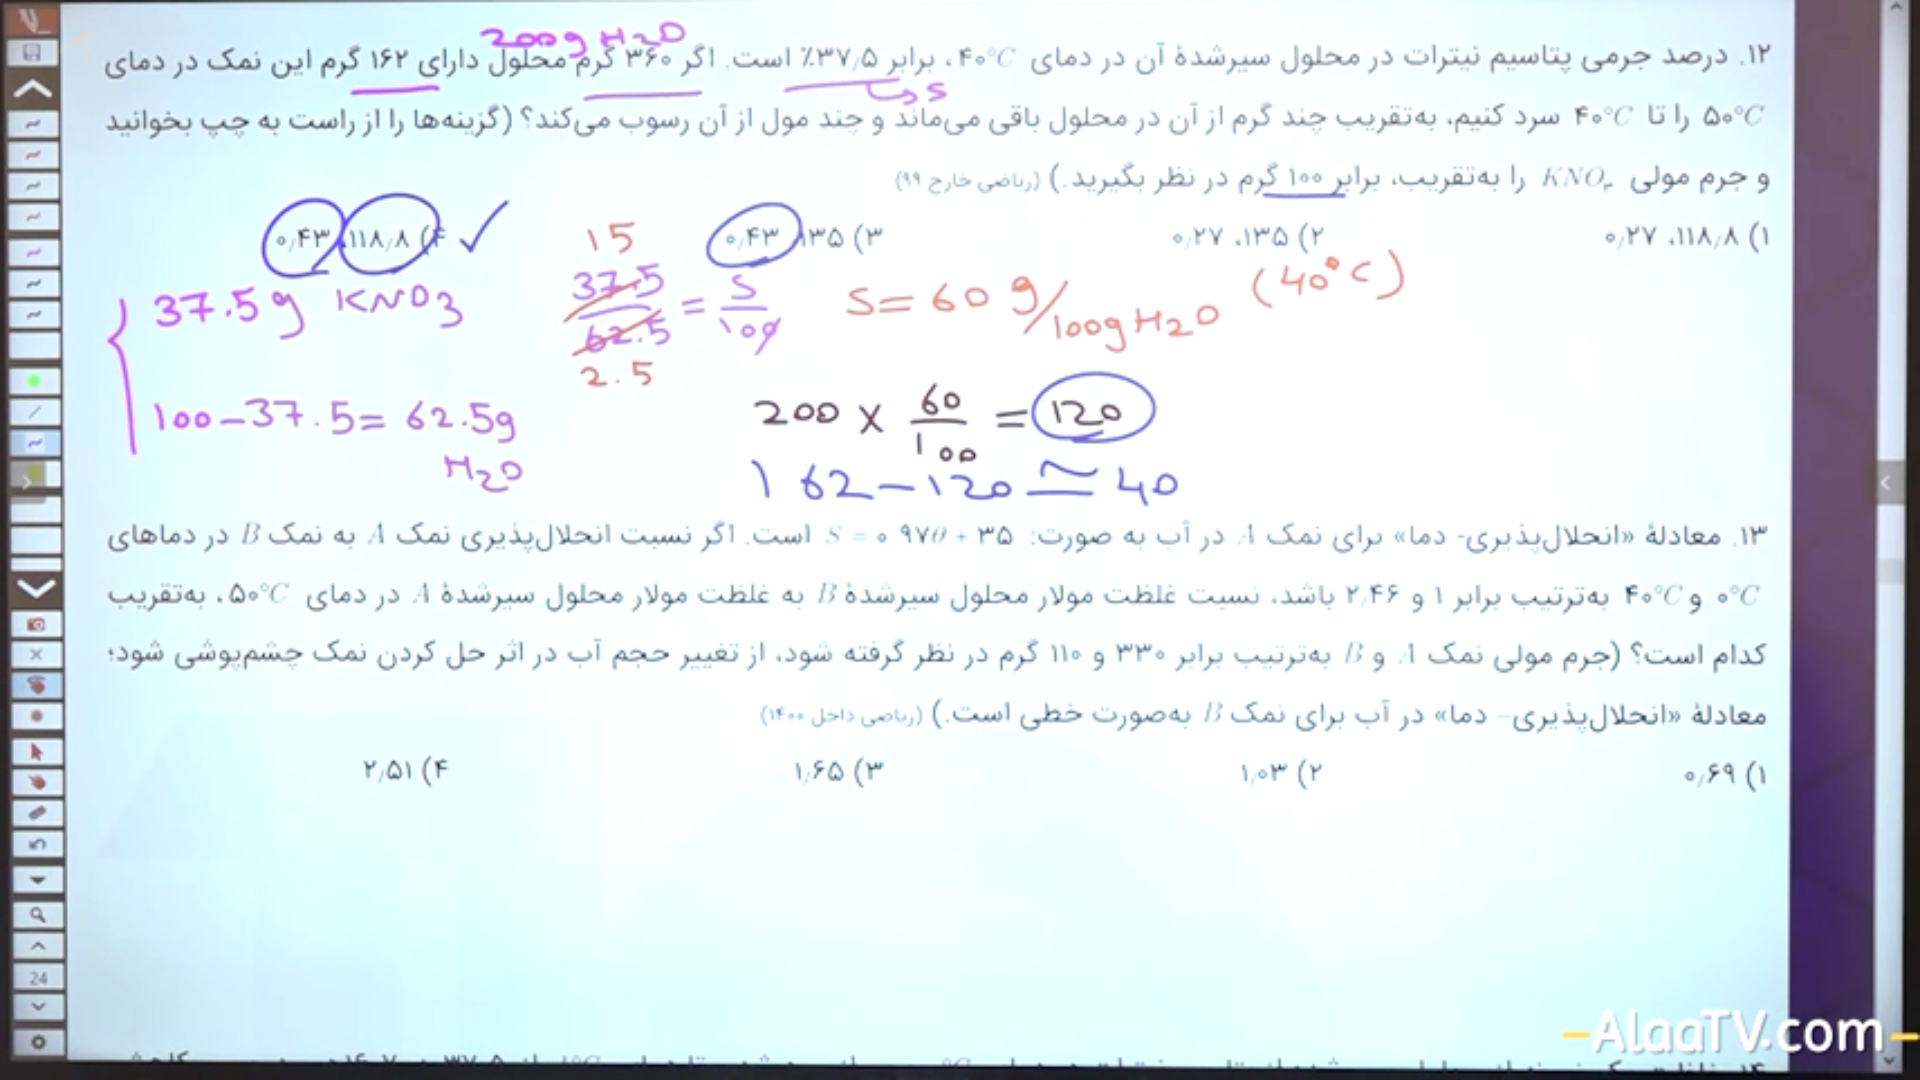 200g H2O
۱۲. درصد جرمی پتاسیم نیترات در محلول سیرشدهٔ آن در دمای ۴۰°C، برابر ۳۷٫۵٪ است. اگر ۳۶۰ گرم محلول دارای ۱۶۲ گرم این نمک در دمای
S
۵۰°C را تا ۴۰°C سرد کنیم، به‌تقریب چند گرم از آن در محلول باقی می‌ماند و چند مول از آن رسوب می‌کند؟ (گزینه‌ها را از راست به چپ بخوانید
و جرم مولی KNO۳ را به‌تقریب، برابر ۱۰۰ گرم در نظر بگیرید.) (ریاضی خارج ۹۹)
۱) ۱۱۸٫۸، ۰٫۲۷ ۲) ۱۳۵، ۰٫۲۷ ۳) ۱۳۵، ۰٫۴۳ ۴) ۱۱۸٫۸، ۰٫۴۳
37.5g KNO3
100-37.5= 62.5g
H2O
15
37.5/62.5 = S/100
2.5
S= 60 g/100g H2O (40°C)
200 × 60/100 = 120
162-120 ≃ 40
۱۳. معادلهٔ «انحلال‌پذیری- دما» برای نمک A در آب به صورت: S = ۰٫۹۷θ + ۳۵ است. اگر نسبت انحلال‌پذیری نمک A به نمک B در دماهای
۰°C و ۴۰°C به‌ترتیب برابر ۱ و ۲٫۴۶ باشد، نسبت غلظت مولار محلول سیرشدهٔ B به غلظت مولار محلول سیرشدهٔ A در دمای ۵۰°C، به‌تقریب
کدام است؟ (جرم مولی نمک A و B به‌ترتیب برابر ۳۳۰ و ۱۱۰ گرم در نظر گرفته شود، از تغییر حجم آب در اثر حل کردن نمک چشم‌پوشی شود؛
معادلهٔ «انحلال‌پذیری- دما» در آب برای نمک B به‌صورت خطی است.) (ریاضی داخل ۱۴۰۰)
۱) ۰٫۶۹ ۲) ۱٫۰۳ ۳) ۱٫۶۵ ۴) ۲٫۵۱
24
AlaaTV.com